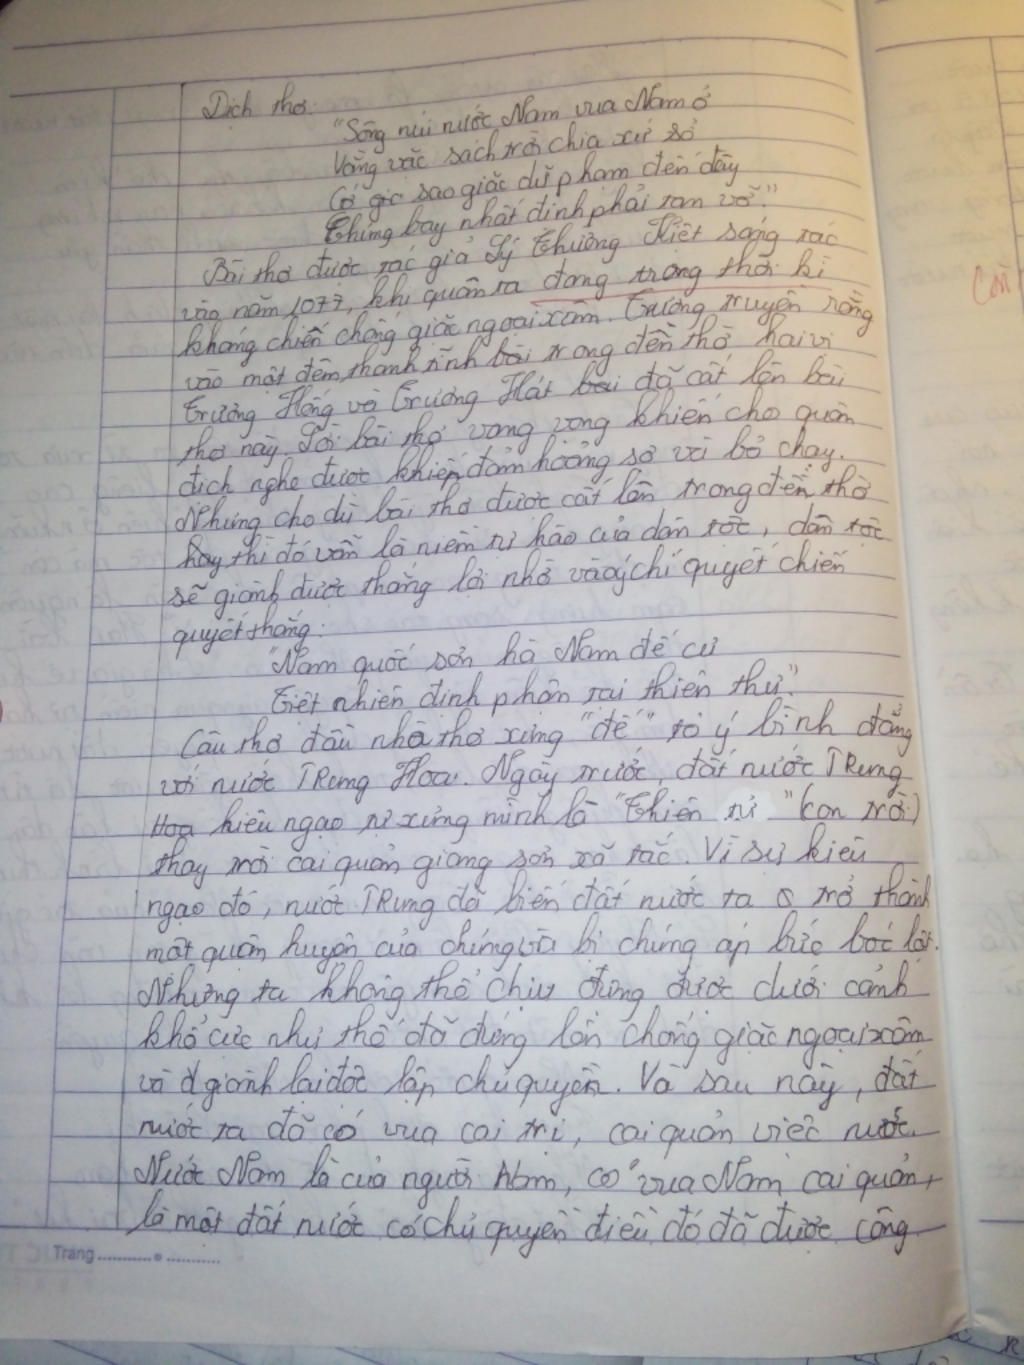 Dịch thơ:
"Sông núi nước Nam vua Nam ở
Vằng vặc sách trời chia xứ sở
Cớ gì sao giặc dữ phạm đến đây
Chúng bay nhất định phải tan vỡ."
Bài thơ được tác giả Lý Thường Kiệt sáng tác
vào năm 1077, khi quân ta đang trong thời kì
kháng chiến chống giặc ngoại xâm. Tương truyền rằng
vào một đêm thanh tĩnh bài trong đền thờ hai vị
Trương Hống và Trương Hát bài đã cất lên bài
thơ này. Lời bài thơ vang vọng khiến cho quân
địch nghe được khiến đám hoảng sợ và bỏ chạy.
Nhưng cho dù bài thơ được cất lên trong đền thờ
hay thì đó vẫn là niềm tự hào của dân tộc, dân tộc
sẽ giành được thắng lợi nhờ vào ý chí quyết chiến
quyết thắng:
"Nam quốc sơn hà Nam đế cư
Tiệt nhiên định phận tại thiên thư."
Câu thơ đầu nhà thơ xưng "đế" tỏ ý bình đẳng
với nước TRung Hoa. Ngày trước, đất nước TRung
Hoa kiêu ngạo tự xưng mình là "Thiên tử" (con trời)
thay trời cai quản giang sơn xã tắc. Vì sự kiêu
ngạo đó, nước TRung đã biến đất nước ta trở thành
một quận huyện của chúng và bị chúng áp bức bóc lột.
Nhưng ta không thể chịu đựng được dưới cảnh
khổ cực như thế đã đứng lên chống giặc ngoại xâm
và giành lại độc lập chủ quyền. Và sau này, đất
nước ta đã có vua cai trị, cai quản việc nước.
Nước Nam là của người Nam, có vua Nam cai quản,
là một đất nước có chủ quyền điều đó đã được công
Trang